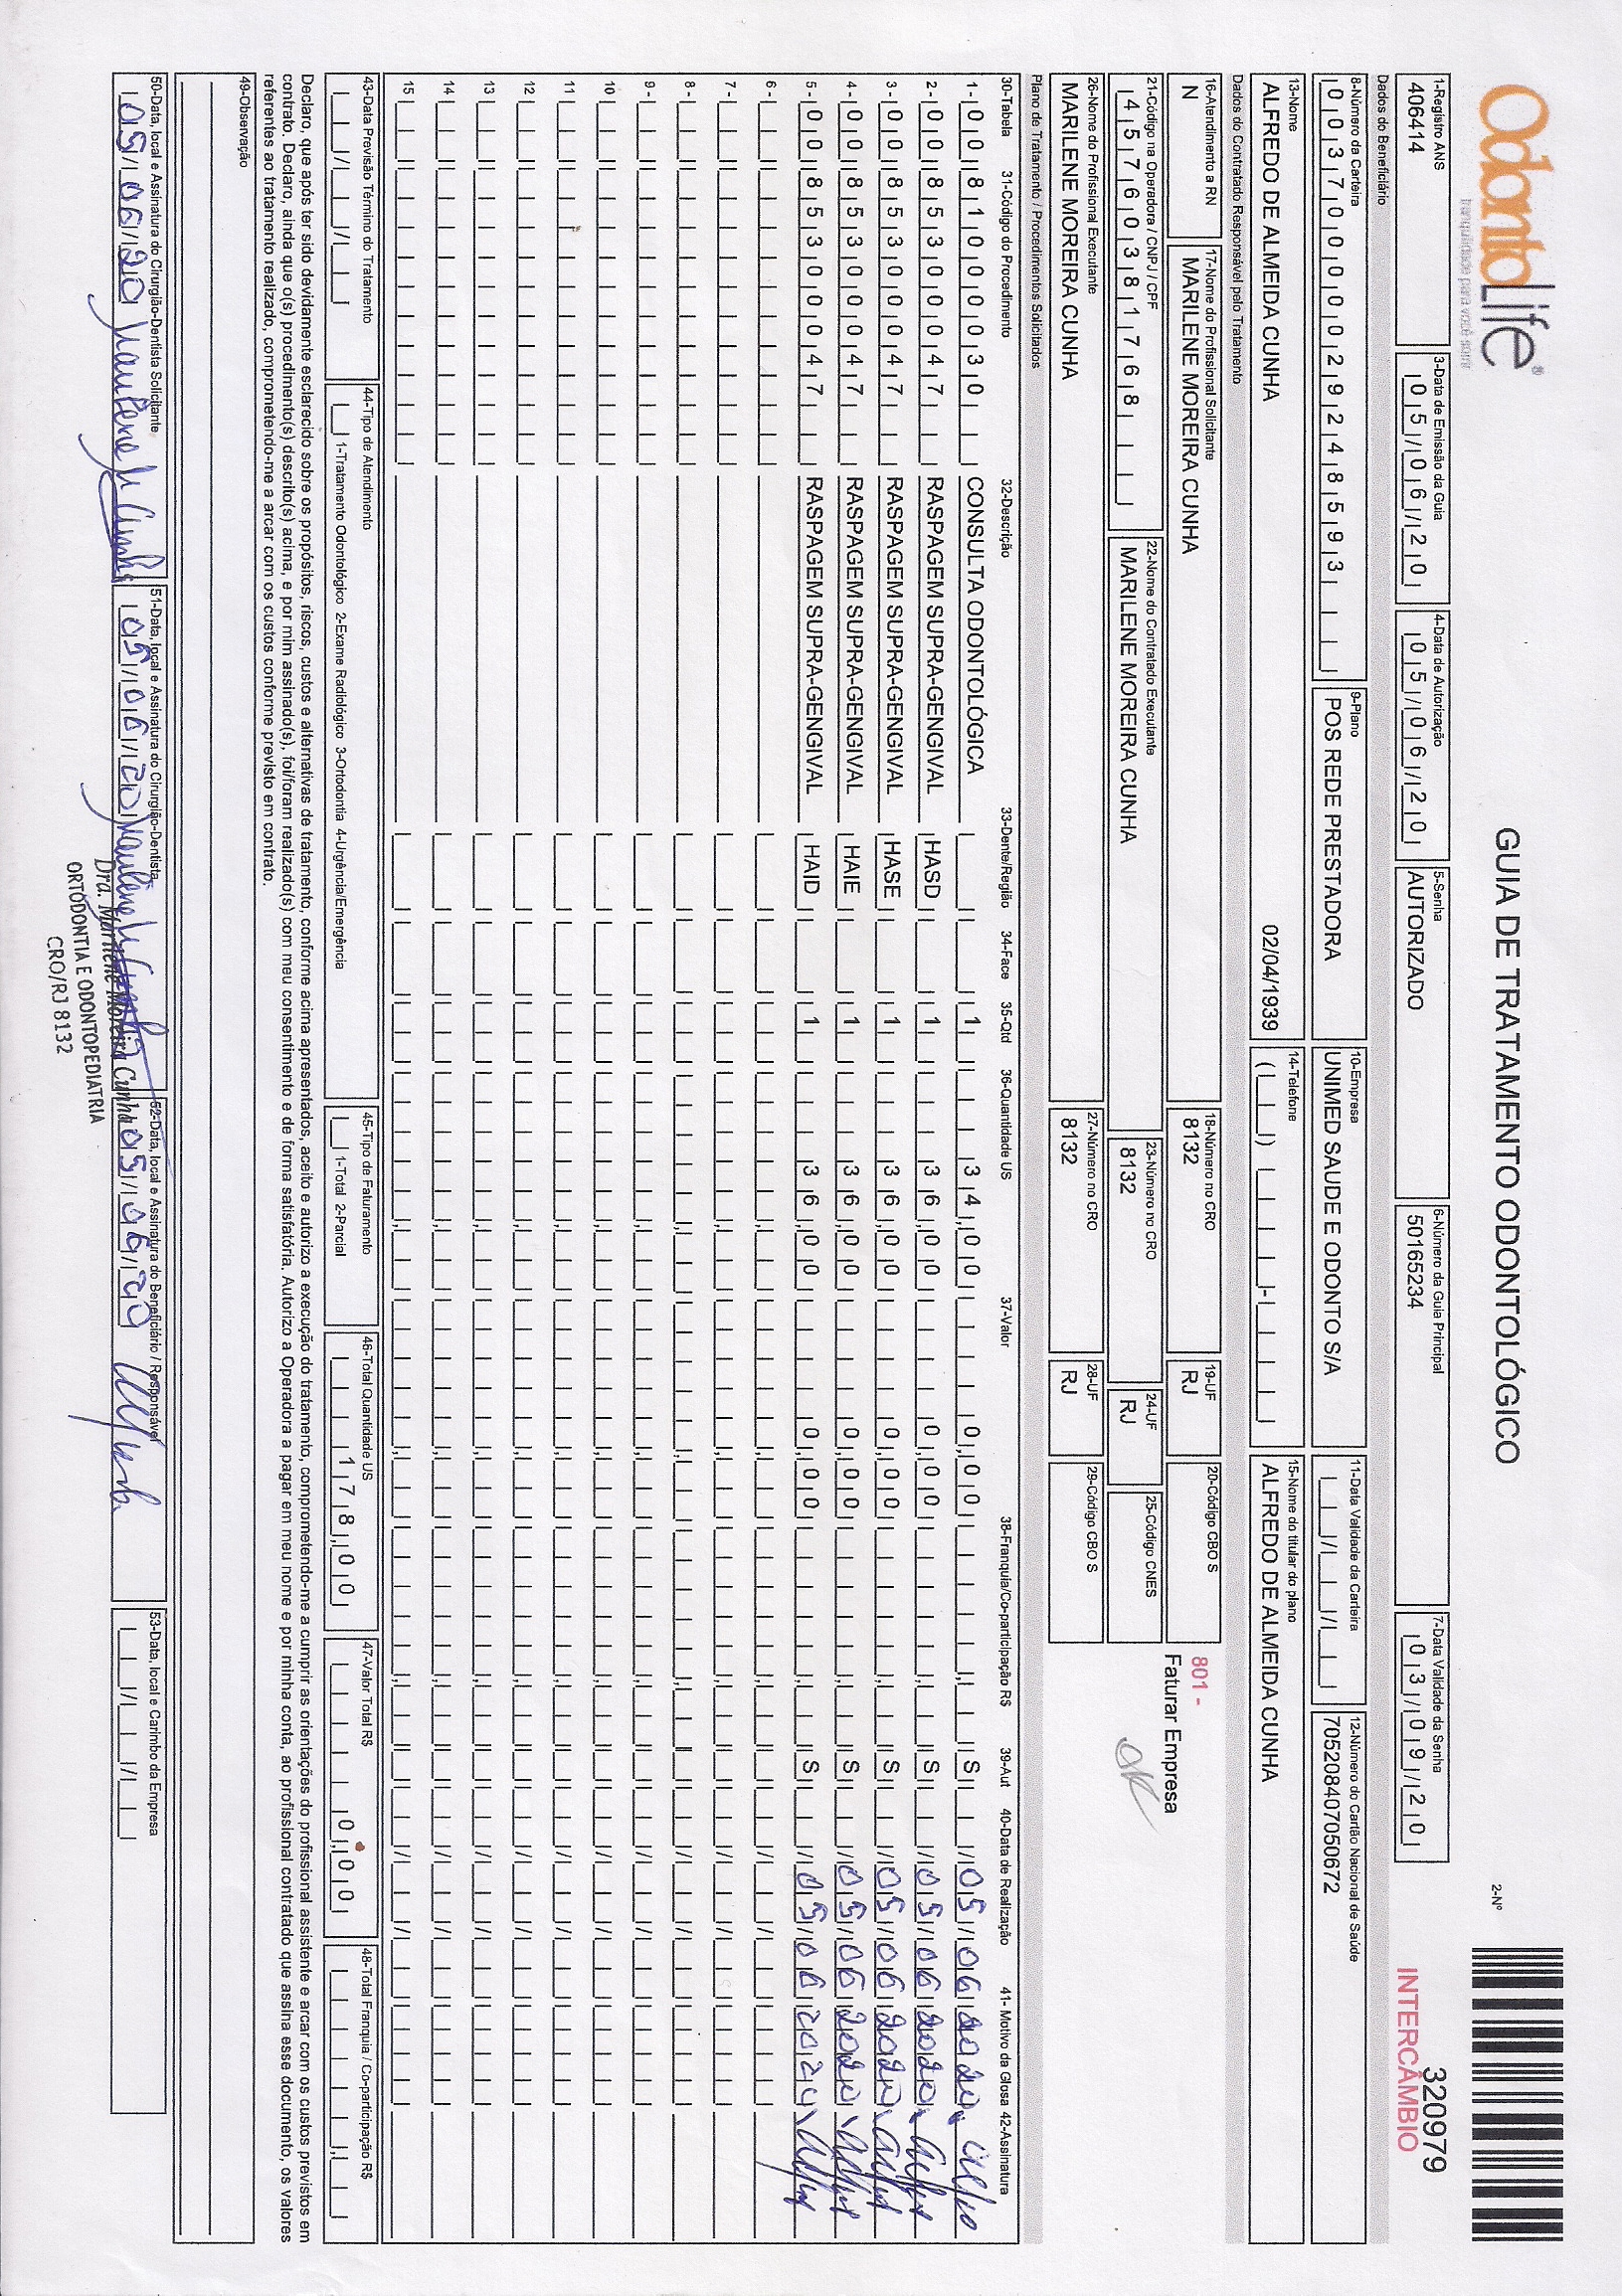 OdontoLife®
tranquilidade para você sorrir
GUIA DE TRATAMENTO ODONTOLÓGICO
2-Nº
320979
INTERCÂMBIO
1-Registro ANS
406414
3-Data de Emissão da Guia
05/06/20
4-Data de Autorização
05/06/20
5-Senha
AUTORIZADO
6-Número da Guia Principal
50165234
7-Data Validade da Senha
03/09/20
Dados do Beneficiário
8-Número da Carteira
00370000029248593
9-Plano
POS REDE PRESTADORA
10-Empresa
UNIMED SAUDE E ODONTO S/A
11-Data Validade da Carteira
12-Número do Cartão Nacional de Saúde
705208407050672
13-Nome
ALFREDO DE ALMEIDA CUNHA 02/04/1939
14-Telefone
15-Nome do titular do plano
ALFREDO DE ALMEIDA CUNHA
Dados do Contratado Responsável pelo Tratamento
16-Atendimento a RN
N
17-Nome do Profissional Solicitante
MARILENE MOREIRA CUNHA
18-Número no CRO
8132
19-UF
RJ
20-Código CBO S
801 -
Faturar Empresa
OK
21-Código na Operadora / CNPJ / CPF
45760381768
22-Nome do Contratado Executante
MARILENE MOREIRA CUNHA
23-Número no CRO
8132
24-UF
RJ
25-Código CNES
26-Nome do Profissional Executante
MARILENE MOREIRA CUNHA
27-Número no CRO
8132
28-UF
RJ
29-Código CBO S
Plano de Tratamento / Procedimentos Solicitados
30-Tabela 31-Código do Procedimento 32-Descrição 33-Dente/Região 34-Face 35-Qtd 36-Quantidade US 37-Valor 38-Franquia/Co-participação R$ 39-Aut 40-Data de Realização 41- Motivo da Glosa 42-Assinatura
1- 00 81000030 CONSULTA ODONTOLÓGICA 1 34,00 0,00 S 05/06/2020
2- 00 85300047 RASPAGEM SUPRA-GENGIVAL HASD 1 36,00 0,00 S 05/06/2020
3- 00 85300047 RASPAGEM SUPRA-GENGIVAL HASE 1 36,00 0,00 S 05/06/2020
4- 00 85300047 RASPAGEM SUPRA-GENGIVAL HAIE 1 36,00 0,00 S 05/06/2020
5- 00 85300047 RASPAGEM SUPRA-GENGIVAL HAID 1 36,00 0,00 S 05/06/2020
6-
7-
8-
9-
10
11
12
13
14
15
43-Data Previsão Término do Tratamento
44-Tipo de Atendimento
1-Tratamento Odontológico 2-Exame Radiológico 3-Ortodontia 4-Urgência/Emergência
45-Tipo de Faturamento
1-Total 2-Parcial
46-Total Quantidade US
178,00
47-Valor Total R$
0,00
48-Total Franquia / Co-participação R$
Declaro, que após ter sido devidamente esclarecido sobre os propósitos, riscos, custos e alternativas de tratamento, conforme acima apresentados, aceito e autorizo a execução do tratamento, comprometendo-me a cumprir as orientações do profissional assistente e arcar com os custos previstos em
contrato. Declaro, ainda que o(s) procedimento(s) descrito(s) acima, e por mim assinado(s), foi/foram realizado(s) com meu consentimento e de forma satisfatória. Autorizo a Operadora a pagar em meu nome e por minha conta, ao profissional contratado que assina esse documento, os valores
referentes ao tratamento realizado, comprometendo-me a arcar com os custos conforme previsto em contrato.
49-Observação
50-Data, local e Assinatura do Cirurgião-Dentista Solicitante
05/06/20 Marilene M Cunha
51-Data, local e Assinatura do Cirurgião-Dentista
05/06/20 Marilene M Cunha
52-Data, local e Assinatura do Beneficiário / Responsável
05/06/20
53-Data, local e Carimbo da Empresa
Dra. Marilene Moreira Cunha
ORTODONTIA E ODONTOPEDIATRIA
CRO/RJ 8132